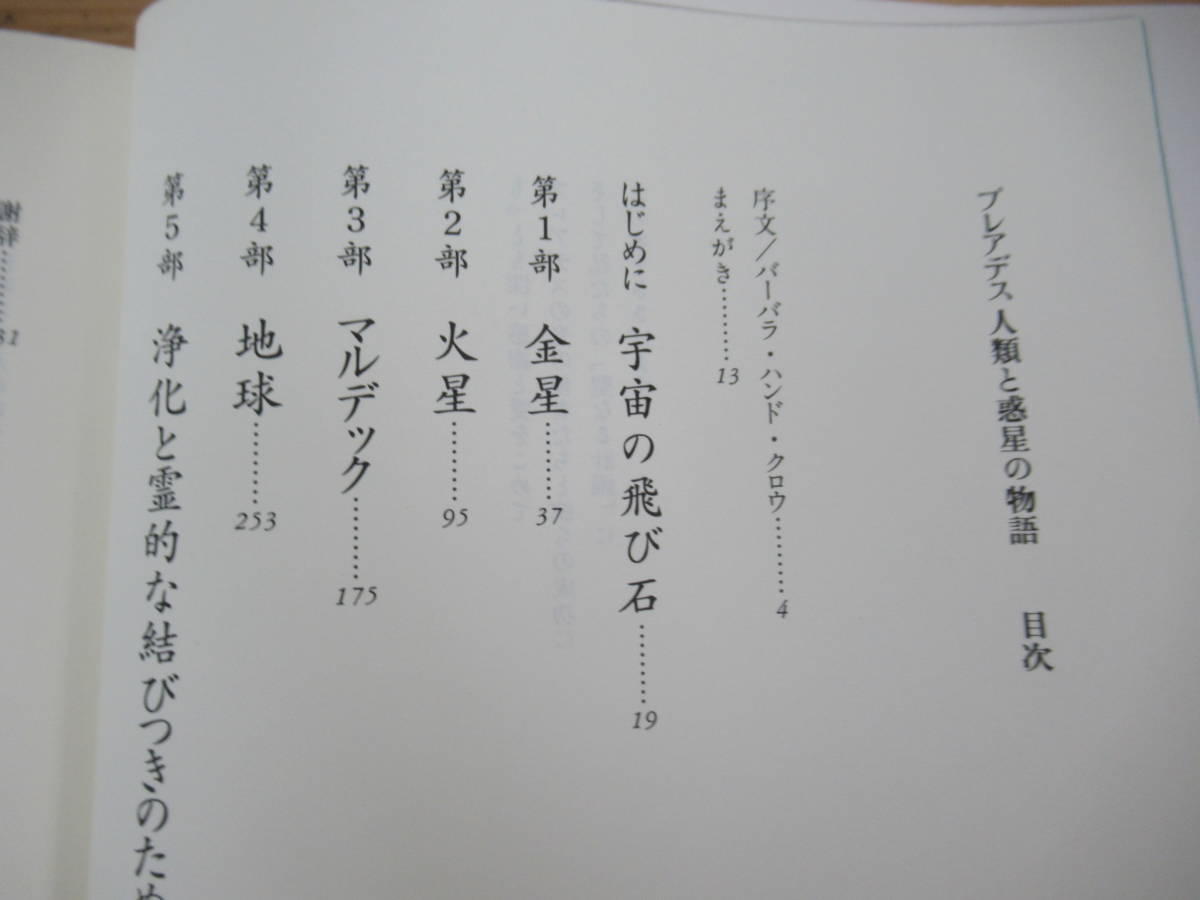 プレアデス 人類と惑星の物語　目次
序文／バーバラ・ハンド・クロウ…………4
まえがき…………13
はじめに　宇宙の飛び石…………19
第1部　金星…………37
第2部　火星…………95
第3部　マルデック…………175
第4部　地球…………253
第5部　浄化と霊的な結びつきのため
謝辞